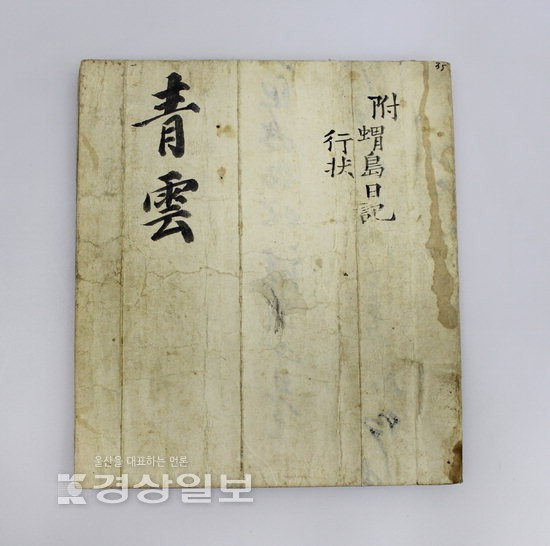 35
附 蝟島日記
行状
青雲
울산을 대표하는 언론
경상일보